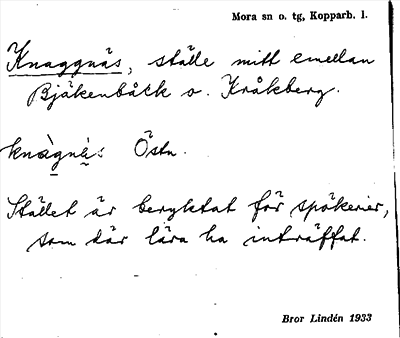 Mora sn o. tg, Kopparb. l.
Knaggnäs, ställe mitt emellan
Bjäkenbäck o. Kråkberg.
knàgnä̀s Östn.
Stället är beryktat för spökerier,
som där lära ha inträffat.
Bror Lindén 1933